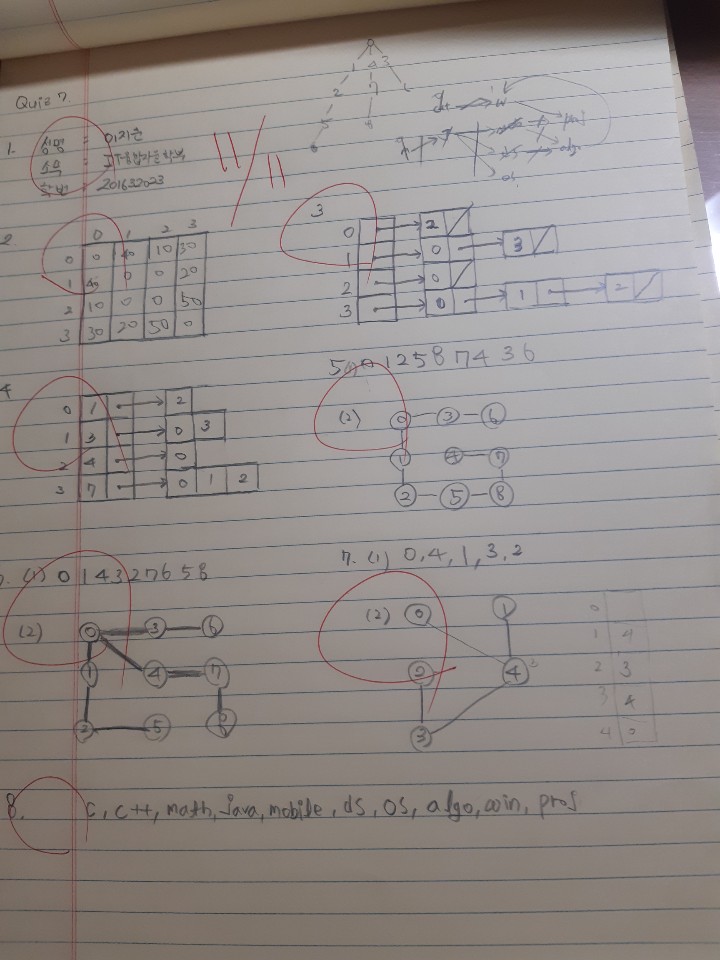 Quiz 7.
1. 성명 :
소속 :
학번 : 201632023
11/11
2.
0 1 2 3
0 0 40 10 30
1 40 0 0 20
2 10 0 0 50
3 30 20 50 0
3
0 2
1 0 3
2 0
3 0 1 2
4
0 1 2
1 3 0 3
2 4 0
3 7 0 1 2
5. (1) 0 1 2 5 8 7 4 3 6
(2) 0 3 6
1 4 7
2 5 8
(1) 0 1 4 3 2 7 6 5 8
(2) 0 3 6
1 4 7
2 5 8
7. (1) 0, 4, 1, 3, 2
(2) 0 1
2 4
3
0
1 4
2 3
3 4
4 0
8. C, C++, math, Java, mobile, dS, OS, algo, win, proj